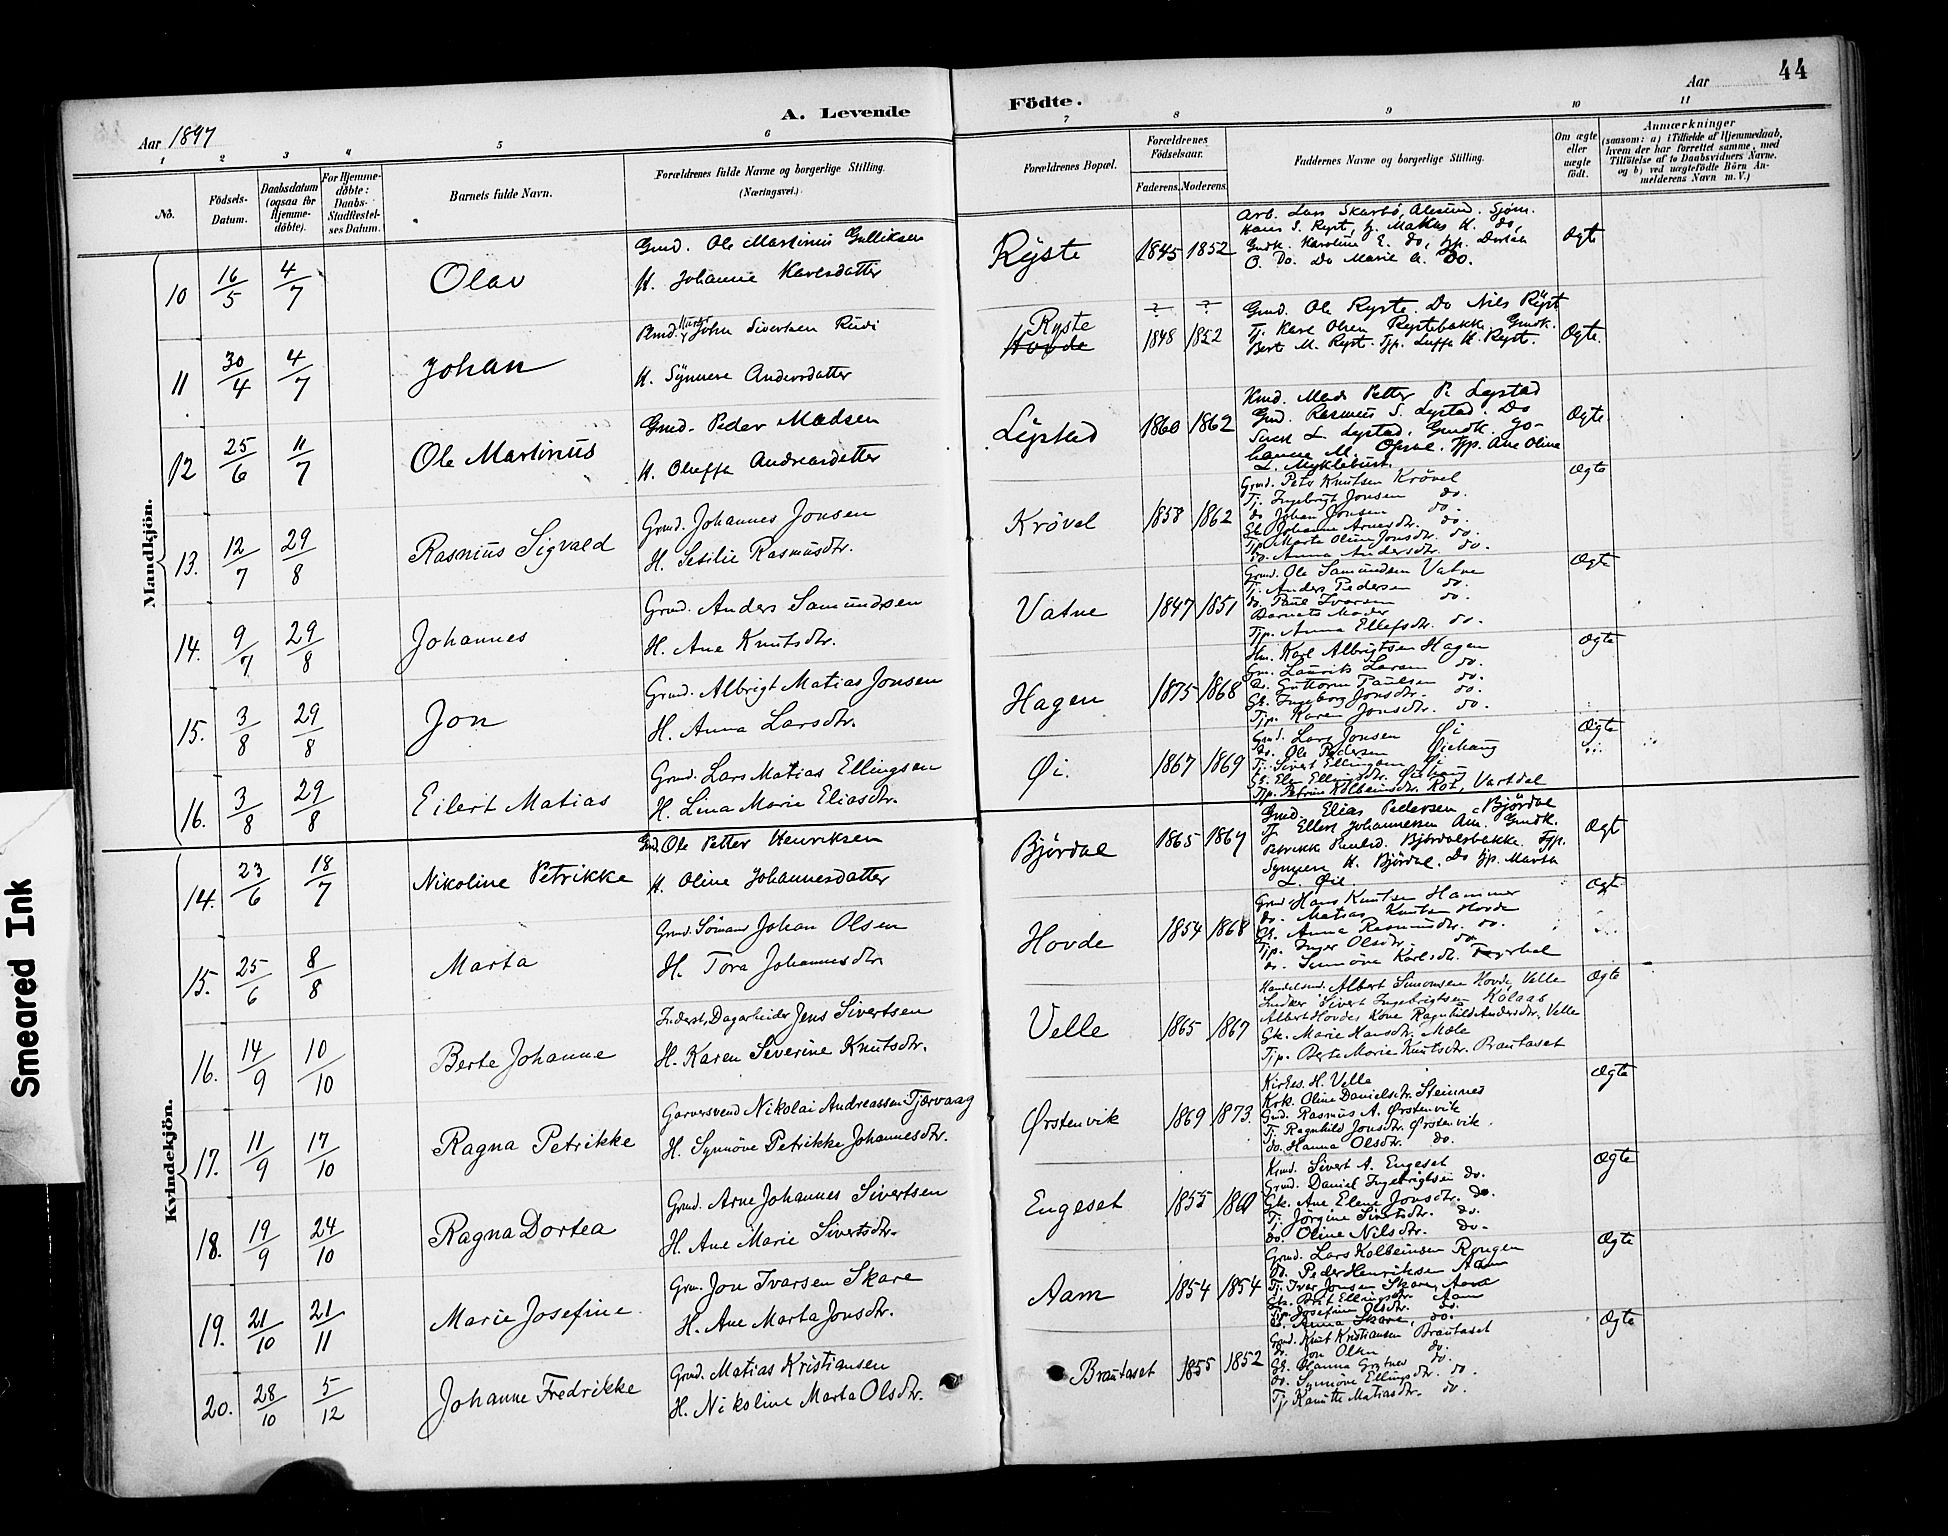 44
A. Levende Födte.
Aar 1897
Aar
1 2 3 4 5 6 7 8 9 10 11
No.
Födsels-Datum.
Daabsdatum (ogsaa for Hjemme-döbte).
For Hjemme-döbte: Daabs-Stadfæstel-ses Datum.
Barnets fulde Navn.
Forældrenes fulde Navne og borgerlige Stilling. (Næringsvei.)
Forældrenes Bopæl.
Forældrenes Födselsaar.
Faderens. Moderens.
Faddernes Navne og borgerlige Stilling.
Om ægte eller uægte födt.
Anmærkninger
(saasom: a) i Tilfælde af Hjemmedaab, hvem der har forrettet samme, med Tilföielse af to Daabsvidners Navne, og b) ved uægtefödte Börn An-melderens Navn m. V.)
Mandkjön.
10 16/5 4/7 Olav
Gmd. Ole Martinus Gulliksen
H. Johanne Karlsdatter
Ryste 1845 1852
Arb. Lars Skarbö, Alesund. Sjöm.
Hans S. Ryst, G. Mathis K. do,
Gmdk. Karoline E. do, Tjp. Dortea
O. Do. Do Marie A. Do.
Ægte
11 30/4 4/7 Johan
John Sivertsen Rudi
H. Synnere Andersdatter
Ryste Hovde
? ?
1848 1852
Gmd. Ole Ryste. Do Nils Ryst
Tj. Karl Olsen Rystebakk. Gmdk.
Berte M. Ryst. Tjp. K. Ryst.
Ægte.
12 25/6 11/7 Ole Martinus
Gmd. Peder Madsen
H. Oluffa Andreasdatter
Lystad 1860 1862
Kmd. Mads Petter P. Lystad
Gmd. Rasmus S. Lystad. Do
L. Lystad. Gmdk. Jo-
hanne M. Opsal. Tjp. Ane Oline
L. Myklebust.
Ægte
13. 12/7 29/8 Rasmus Sigvald
Grmd. Johannes Jonsen
H. Sesilie Rasmusdtr.
Krövel 1858 1862
Grmd. Peter Knutsen Krövel
Tj. Ingebrigt Jonsen do.
do Johan Jonsen do.
Gk. Johanne Arnesdtr. do.
Tjp. Marte Oline Jonsdtr. do.
do. Anna Andersdtr. do.
Ægte
14. 9/7 29/8 Johannes
Grmd. Anders Samundsen
H. Ane Knutsdtr.
Vatne 1847 1851
Grmd. Ole Samundsen Vatne
Tj. Anders Pedersen do.
do. Paul Ivarsen do.
Barnets Moder
Tjp. Anna Ellefsdtr. do.
Ægte
15. 3/8 29/8 Jon
Grmd. Albrigt Matias Jonsen
H. Anna Larsdtr.
Hagen 1875 1868
Karl Albrigtsen Hagen
Gm. Laurits Larsen do.
do. Guttorm Paulsen do.
Gk. Ingeborg Jonsdtr. do.
Tjp. Karen Jonsdtr. do.
Ægte
16. 3/8 29/8 Eilert Matias
Grmd. Lars Matias Ellingsen
H. Lina Marie Eliasdtr.
Øi. 1867 1869
Grmd. Lars Jonsen Øi
do. Ole Pedersen Øiehaug
Tj. Sivert Ellingsen Øi
Gk. Elen Ellingsdtr. Øiehaug
Tjp. Petrine Kolbeinsdtr. Röt, Vartdal
Ægte
Kvindekjön.
14. 23/6 18/7 Nikoline Petrikke
Gmd. Ole Petter Henriksen
H. Oline Johannesdatter
Björdal 1865 1867
Gmd. Elias Pedersen Björdal
Tj. Ellert Johannessen Am. Gmdk.
Petrikk Paulsd. Björdalsbakke. Tjp.
Synnere K. Björdal. Do Tjp. Martha
L. Øie
Ægt
15. 25/6 8/8 Marta
Grmd. Sömand Johan Olsen
H. Tora Johannesdtr
Hovde 1854 1868
Grmd Hans Knutsen Hammer
do. Matias Knutsen Hovde
Gk. Anna Rasmusdtr. do.
Tjp. Inger Olsdtr. do.
do. Sunnöve Karlsdtr.
Ægte
16. 14/9 10/10 Berte Johanne
Inderst, Dagarbeider Jens Sivertsen
H. Karen Severine Knutsdtr.
Velle 1865 1867
Handelsmd. Albert Simonsen Hovde, Velle
Sivert Ingebrigtsen Kolaas
Albert Hovdes Kone Ragnhild Andersdtr. Velle
Gk. Marie Hansdtr. Mæle
Tjp. Berte Marie Knutsdtr. Brautaset
Ægte
17. 11/9 17/10 Ragna Petrikke
Garversvend Nikolai Andreassen Tjervaag
H. Synnöve Petrikke Johannesdtr.
Ørstenvik 1869 1873.
Kirkes. H. Velle
Kok. Oline Danielsdtr. Steinnes
Gmd. Rasmus A. Ørstenvik
Tj. Ragnhild Jonsdtr. Ørstenvik.
do. Hanna Olsdtr. do.
Ægte
18. 19/9 24/10 Ragna Dortea
Grmd. Arne Johannes Sivertsen
H. Ane Marie Sivertsdtr.
Engeset 1855 1860
Kmd. Sivert A. Engeset
Grmd. Daniel Ingebrigtsen do.
Gk. Ane Elene Jonsdtr. do.
Tj. Jörgine Sivertsdtr. do.
do. Oline Nilsdtr. do.
Ægte
19. 21/10 21/11 Marie Josefine.
Grm. Jon Ivarsen Skare
H. Ane Marta Jonsdtr.
Aam 1854 1854
Grmd. Lars Kolbeinsen Rongen
do. Peder Henriksen Aam
Tj. Ivar Jonsen Skare, Aam
Gk. Brit Ellingsdtr Aam
Tjp. Josefine Olsdtr. do.
do. Anna Skare, do.
Ægte
20. 28/10 5/12 Johanne Fredrikke
Grmd. Matias Kristiansen
H. Nikoline Marta Olsdtr.
Brautaset 1855 1852
Grmd. Knut Kristiansen Brautaset
do. Jon Olsen do.
Gk. Olianna do.
do. Synnöve Ellingsdtr. do.
Tj. Kanutte Matiasdtr. do.
Ægte
Smeared Ink